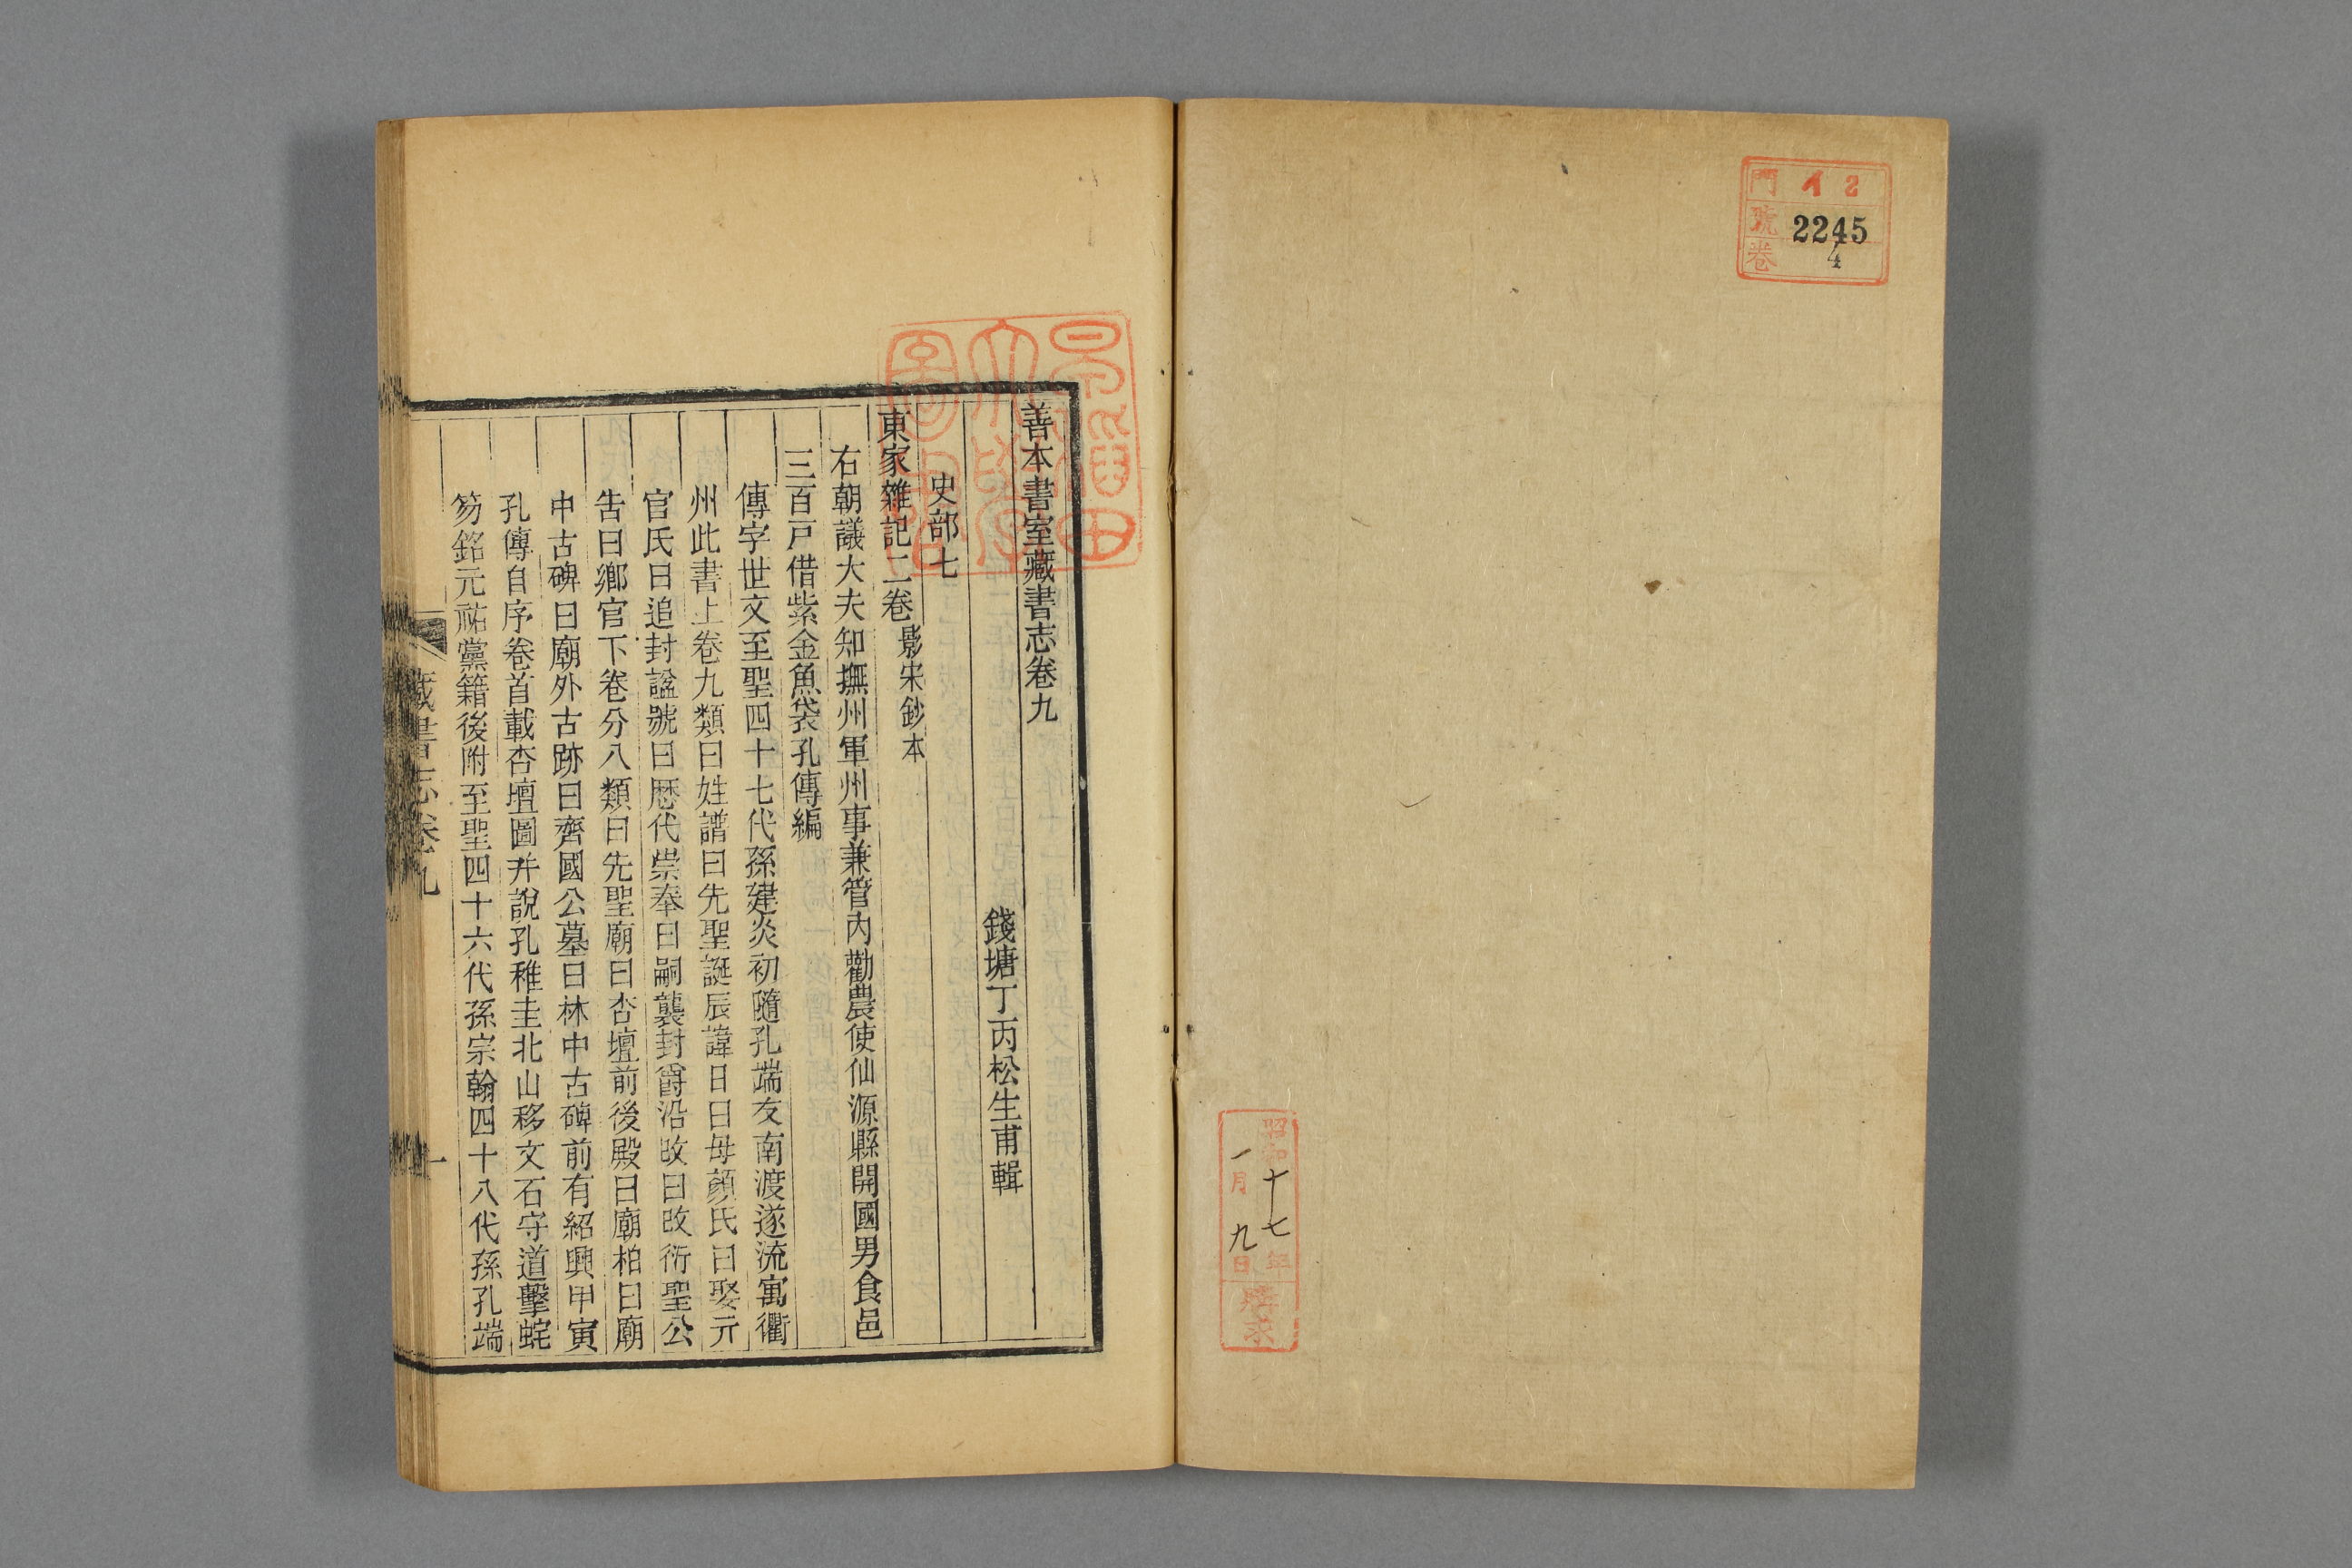 門 イ 2
號 2245
卷 4
昭和十七年
一月九日
購求
早稲田大學圖書
善本書室藏書志卷九
錢塘丁丙松生甫輯
史部七
東家雜記二卷 影宋鈔本
右朝議大夫知撫州軍州事兼管內勸農使仙源縣開國男食邑
三百戸借紫金魚袋孔傳編
傳字世文至聖四十七代孫建炎初隨孔端友南渡遂流寓衢
州此書上卷九類曰姓譜曰先聖誕辰諱日曰母顔氏曰娶亓
官氏曰追封諡號曰歷代崇奉曰嗣襲封爵沿改曰改衍聖公
告曰鄉官下卷分八類曰先聖廟曰杏壇前後殿曰廟柏曰廟
中古碑曰廟外古跡曰齊國公墓曰林中古碑前有紹興甲寅
孔傳自序卷首載杏壇圖并說孔稚圭北山移文石守道擊蛇
笏銘元祐黨籍後附至聖四十六代孫宗翰四十八代孫孔端
藏書志卷九
一